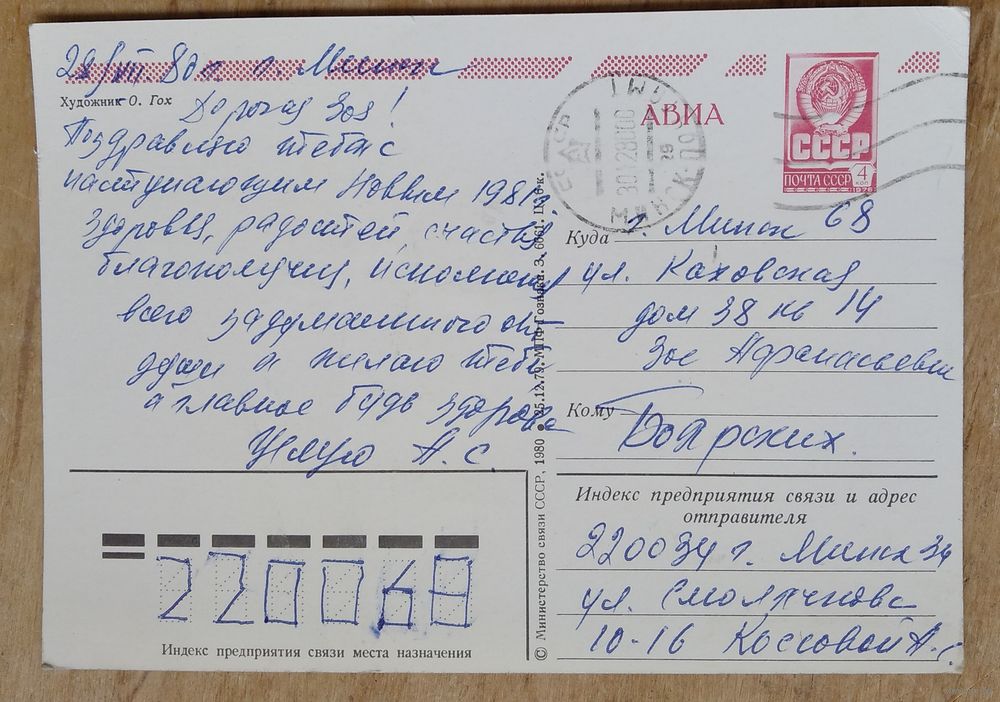 28/XII 80 г. г. Минск
Художник О. Гох
Дорогая Зоя!
Поздравляю тебя с
наступающим Новым 1981 г.
Здоровья, радостей, счастья,
благополучия, исполнения
всего задуманного от
души я желаю тебе
а главное будь здорова
Целую А. С.
АВИА
МИНСК
СССР
ПОЧТА СССР
4
КОП
1978
Куда г. Минск 68
ул. Каховская
дом 38 кв 14
Зое Афанасьевне
Кому
Боярских.
Индекс предприятия связи и адрес
отправителя
220034 г. Минск 34
ул. Смолячкова
10-16 Коссовой А. С.
220068
Индекс предприятия связи места назначения
© Министерство связи СССР, 1980 ● 25.12.79. МПФ Гознака. З.